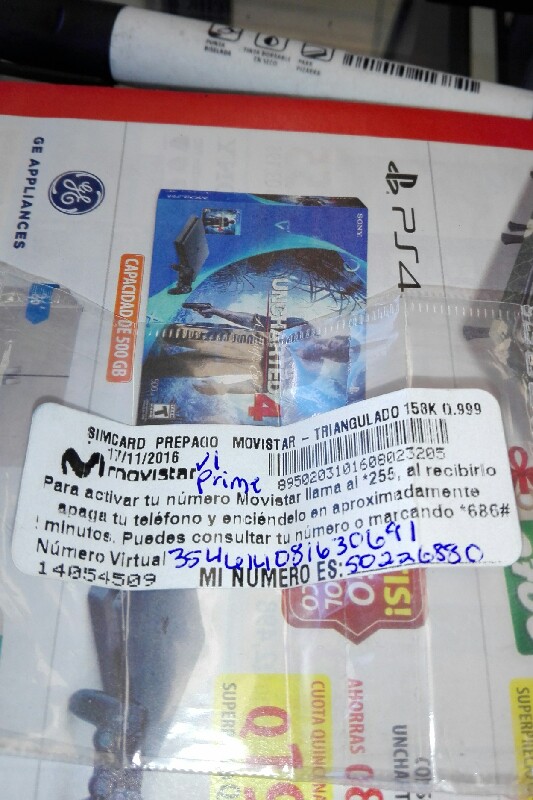 GE APPLIANCES
PS4
CAPACIDAD DE 500 GB
SONY
UNCHARTED
4
SIMCARD PREPAGO MOVISTAR - TRIANGULADO 158K 0.999
17/11/2016
movistar
j1 Prime
8950203101608023205
Para activar tu número Movistar llama al *255, al recibirlo
apaga tu teléfono y enciéndelo en aproximadamente
minutos. Puedes consultar tu número o marcando *686#
Número Virtual 354614081630691
14054509 MI NUMERO ES: 50226880
CUOTA QUINCENA
AHORRAS
UNCHA